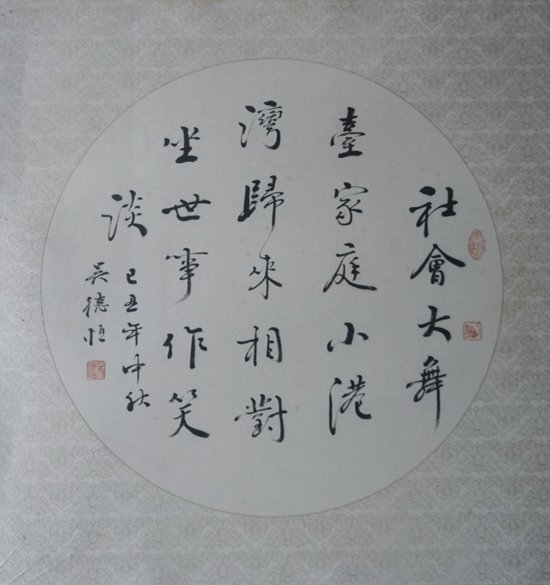 社會大舞
臺家庭小港
灣歸來相對
坐世事作笑
談
己丑年中秋
吳德恒